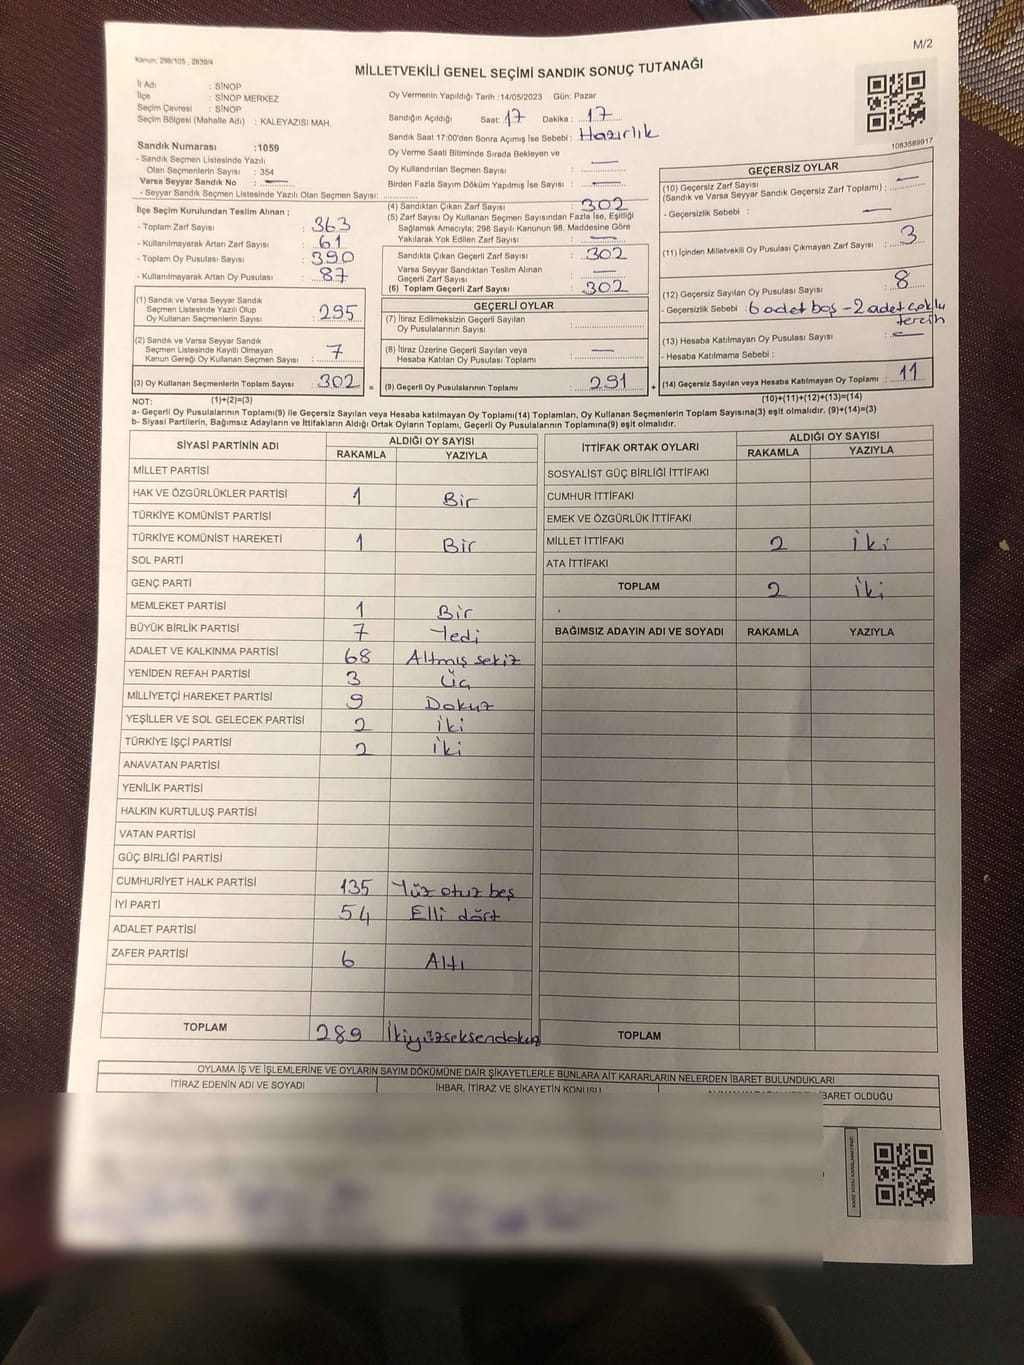 Kanun: 298/105 , 2839/4
M/2
MİLLETVEKİLİ GENEL SEÇİMİ SANDIK SONUÇ TUTANAĞI
İl Adı : SİNOP
İlçe : SİNOP MERKEZ
Seçim Çevresi : SİNOP
Seçim Bölgesi (Mahalle Adı) : KALEYAZISI MAH.
Sandık Numarası :1059
- Sandık Seçmen Listesinde Yazılı
Olan Seçmenlerin Sayısı : 354
Varsa Seyyar Sandık No : —
- Seyyar Sandık Seçmen Listesinde Yazılı Olan Seçmen Sayısı:
Oy Vermenin Yapıldığı Tarih :14/05/2023 Gün: Pazar
Sandığın Açıldığı Saat: 17 Dakika : 17
Sandık Saat 17:00'den Sonra Açımış İse Sebebi : Hazırlık
Oy Verme Saati Bitiminde Sırada Bekleyen ve
Oy Kullandırılan Seçmen Sayısı : —
Birden Fazla Sayım Döküm Yapılmış İse Sayısı : —
1083589917
İlçe Seçim Kurulundan Teslim Alınan ;
- Toplam Zarf Sayısı : 363
- Kullanılmayarak Artan Zarf Sayısı : 61
- Toplam Oy Pusulası Sayısı : 390
- Kullanılmayarak Artan Oy Pusulası : 87
(1) Sandık ve Varsa Seyyar Sandık
Seçmen Listesinde Yazılı Olup
Oy Kullanan Seçmenlerin Sayısı : 295
(2) Sandık ve Varsa Seyyar Sandık
Seçmen Listesinde Kayıtlı Olmayan
Kanun Gereği Oy Kullanan Seçmen Sayısı : 7
(3) Oy Kullanan Seçmenlerin Toplam Sayısı : 302 =
(4) Sandıktan Çıkan Zarf Sayısı : 302
(5) Zarf Sayısı Oy Kullanan Seçmen Sayısından Fazla İse, Eşitliği
Sağlamak Amacıyla; 298 Sayılı Kanunun 98. Maddesine Göre
Yakılarak Yok Edilen Zarf Sayısı : —
Sandıkta Çıkan Geçerli Zarf Sayısı : 302
Varsa Seyyar Sandıktan Teslim Alınan
Geçerli Zarf Sayısı : —
(6) Toplam Geçerli Zarf Sayısı : 302
GEÇERLİ OYLAR
(7) İtiraz Edilmeksizin Geçerli Sayılan
Oy Pusulalarının Sayısı :
(8) İtiraz Üzerine Geçerli Sayılan veya
Hesaba Katılan Oy Pusulası Toplamı : —
(9) Geçerli Oy Pusulalarının Toplamı : 291 +
GEÇERSİZ OYLAR
(10) Geçersiz Zarf Sayısı
(Sandık ve Varsa Seyyar Sandık Geçersiz Zarf Toplamı) : —
- Geçersizlik Sebebi : —
(11) İçinden Milletvekili Oy Pusulası Çıkmayan Zarf Sayısı : 3
(12) Geçersiz Sayılan Oy Pusulası Sayısı : 8
- Geçersizlik Sebebi : 6 adet boş - 2 adet çoklu
tercih
(13) Hesaba Katılmayan Oy Pusulası Sayısı : —
- Hesaba Katılmama Sebebi :
(14) Geçersiz Sayılan veya Hesaba Katılmayan Oy Toplamı : 11
NOT: (1)+(2)=(3)
(10)+(11)+(12)+(13)=(14)
a- Geçerli Oy Pusulalarının Toplamı(9) ile Geçersiz Sayılan veya Hesaba katılmayan Oy Toplamı(14) Toplamları, Oy Kullanan Seçmenlerin Toplam Sayısına(3) eşit olmalıdır. (9)+(14)=(3)
b- Siyasi Partilerin, Bağımsız Adayların ve İttifakların Aldığı Ortak Oyların Toplamı, Geçerli Oy Pusulalarının Toplamına(9) eşit olmalıdır.
SİYASİ PARTİNİN ADI ALDIĞI OY SAYISI
RAKAMLA YAZIYLA
MİLLET PARTİSİ
HAK VE ÖZGÜRLÜKLER PARTİSİ 1 Bir
TÜRKİYE KOMÜNİST PARTİSİ
TÜRKİYE KOMÜNİST HAREKETİ 1 Bir
SOL PARTİ
GENÇ PARTİ
MEMLEKET PARTİSİ 1 Bir
BÜYÜK BİRLİK PARTİSİ 7 Yedi
ADALET VE KALKINMA PARTİSİ 68 Altmış sekiz
YENİDEN REFAH PARTİSİ 3 Üç
MİLLİYETÇİ HAREKET PARTİSİ 9 Dokuz
YEŞİLLER VE SOL GELECEK PARTİSİ 2 İki
TÜRKİYE İŞÇİ PARTİSİ 2 İki
ANAVATAN PARTİSİ
YENİLİK PARTİSİ
HALKIN KURTULUŞ PARTİSİ
VATAN PARTİSİ
GÜÇ BİRLİĞİ PARTİSİ
CUMHURİYET HALK PARTİSİ 135 Yüz otuz beş
İYİ PARTİ 54 Elli dört
ADALET PARTİSİ
ZAFER PARTİSİ 6 Altı
TOPLAM 289 İkiyüzseksendokuz
İTTİFAK ORTAK OYLARI ALDIĞI OY SAYISI
RAKAMLA YAZIYLA
SOSYALİST GÜÇ BİRLİĞİ İTTİFAKI
CUMHUR İTTİFAKI
EMEK VE ÖZGÜRLÜK İTTİFAKI
MİLLET İTTİFAKI 2 İki
ATA İTTİFAKI
TOPLAM 2 İki
BAĞIMSIZ ADAYIN ADI VE SOYADI RAKAMLA YAZIYLA
TOPLAM
OYLAMA İŞ VE İŞLEMLERİNE VE OYLARIN SAYIM DÖKÜMÜNE DAİR ŞİKAYETLERLE BUNLARA AİT KARARLARIN NELERDEN İBARET BULUNDUKLARI
İTİRAZ EDENİN ADI VE SOYADI
İHBAR, İTİRAZ VE ŞİKAYETİN KONUSU
İBARET OLDUĞU